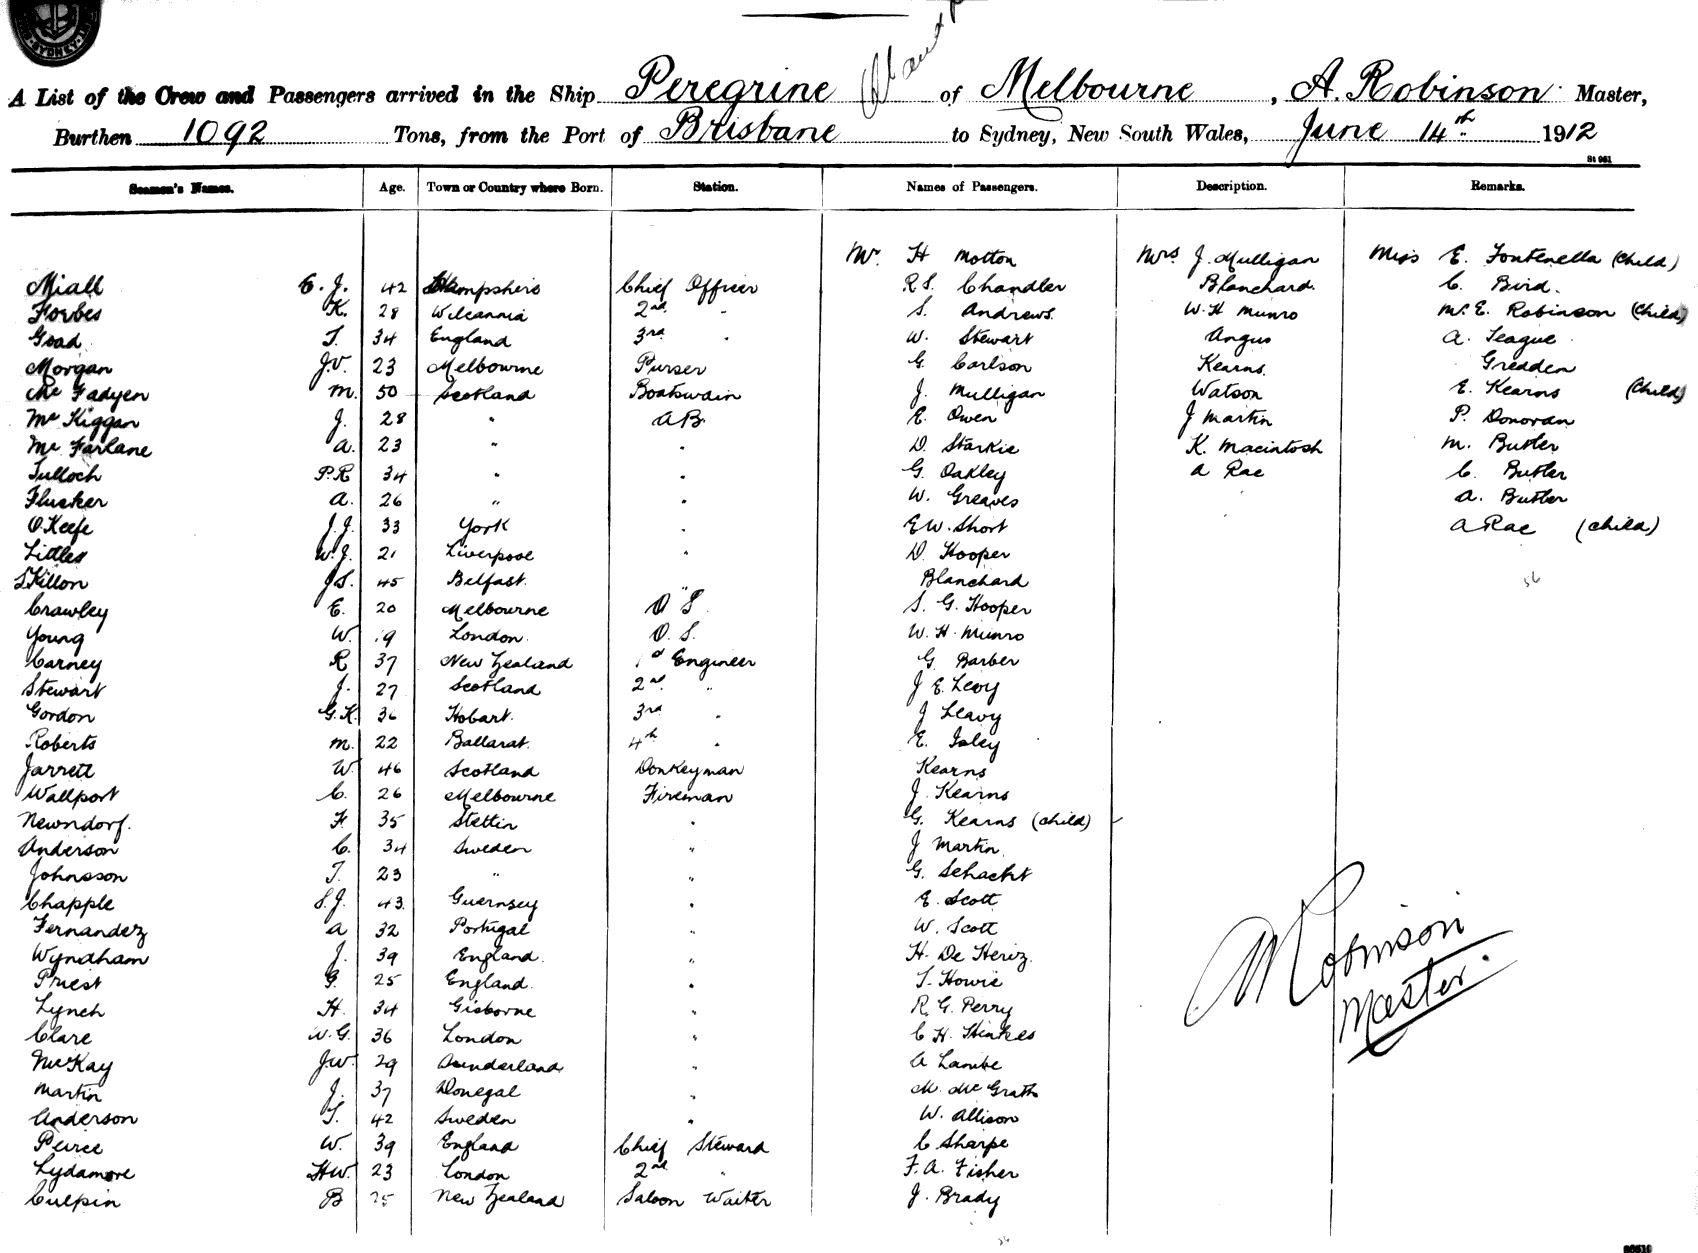 SYDNEY
A List of the Crew and Passengers arrived in the Ship Peregrine of Melbourne, A. Robinson Master,
Burthen 1092 Tons, from the Port of Brisbane to Sydney, New South Wales, June 14th 1912
St 961
Seamen's Names. Age. Town or Country where Born. Station. Names of Passengers. Description. Remarks.
Mr. H Motton Mrs J. Mulligan Miss E. Fontenella (Child)
Miall E. J. 42 Hampshire Chief Officer R S. Chandler Blanchard. C. Bird.
Forbes K. 28 Wilcannia 2nd " S. Andrews. W. H Munro Mr. E. Robinson (Child)
Goad T. 34 England 3rd " W. Stewart Angus A. Teague
Morgan J.V. 23 Melbourne Purser G. Carlson Kearns. Gredden
Mc Fadyen M. 50 Scotland Boatswain J. Mulligan Watson E. Kearns (Child)
Mc Kiggan J. 28 " A B. E. Owen J Martin P. Donovan
Mc Farlane A. 23 " " D. Starkie K. Macintosh M. Butler
Tulloch P.R 34 " " G. Oakley A Rae C. Butler
Flucker A. 26 " " W. Greaves A. Butler
O'Keefe J.J. 33 York " E W. Short A Rae (Child)
Littler W.J. 21 Liverpool " D. Hooper
Skillon J S. 45 Belfast. " Blanchard
Crawley E. 20 Melbourne O S. S. G. Hooper
Young W. 19 London. O. S. W. H. Munro
Carney R 37 New Zealand 1st Engineer G. Barber
Stewart J. 27 Scotland 2nd " J E. Levy
Gordon G.K. 36 Hobart. 3rd " J Leavy
Roberts M. 22 Ballarat. 4th " E. Isley
Jarrett W. 46 Scotland Donkeyman Kearns
Wallport C. 26 Melbourne Fireman J. Kearns
Newndorf. F. 35 Stettin " G. Kearns (child)
Anderson C. 34 Sweden " J Martin.
Johnsson T. 23 " " G. Schacht
Chapple S.J. 43. Guernsey " E. Scott
Fernandez A 32 Portugal " W. Scott
Wyndham J. 39 England. " H. De Heriz.
Priest G. 25 England. " T. Howie
Lynch H. 34 Gisborne " R. G. Perry
Clare W.G. 36 London " C H. Hinkes
McKay J.W. 29 Sunderland " A Lambe
Martin J. 37 Donegal " M. Mc Grath
Anderson T. 42 Sweden " W. Allison
Peirce W. 39 England Chief Steward C Sharpe
Lydamore H.W. 23 London 2nd " F. A. Fisher
Culpin B 25 New Zealand Saloon Waiter J. Brady
56
A Robinson
Master.